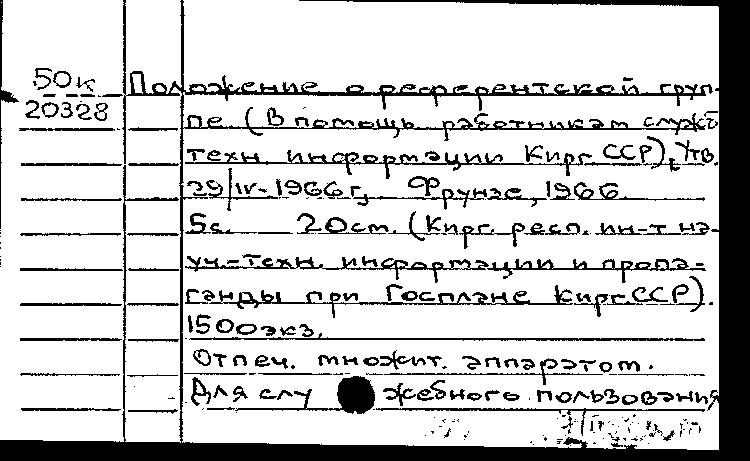 50к Положение о референтской груп-
20328 пе. (В помощь работникам служб
техн. информации Кирг. ССР), Утв.
29/IV-1966г, Фрунзе, 1966.
5с. 20см. (Кирг. респ. ин-т на-
уч.-техн. информации и пропа-
ганды при Госплане Кирг.ССР).
1500экз.
Отпеч. множит. аппаратом.
Для служебного пользования